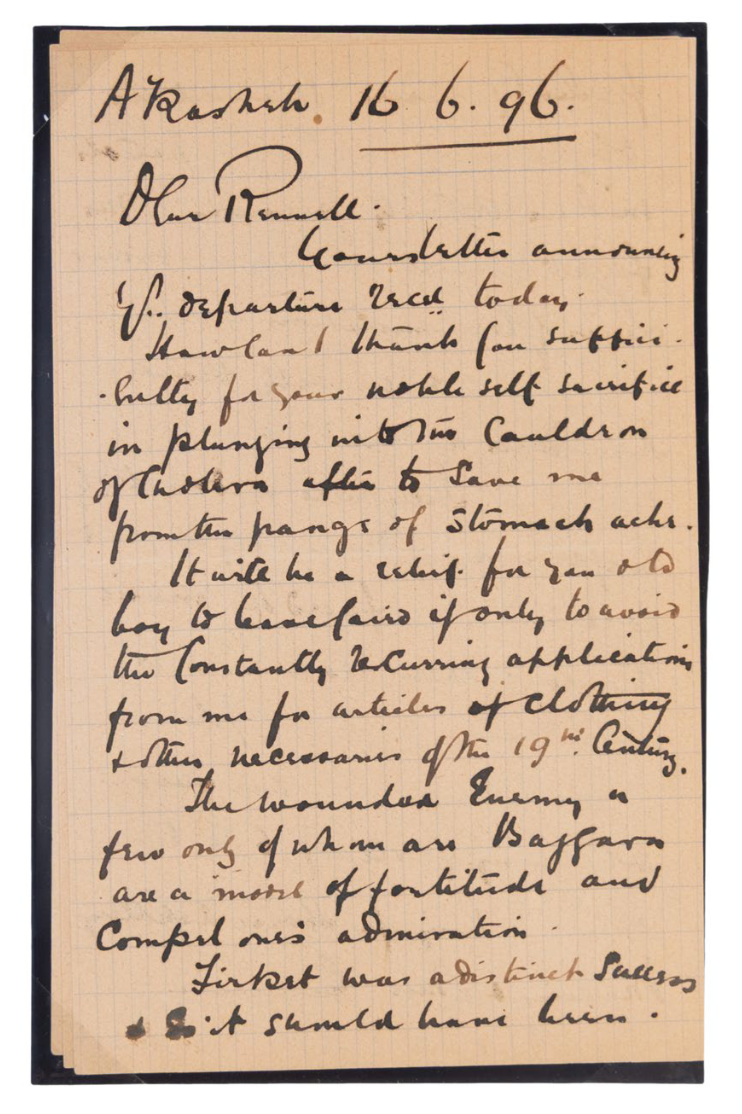 Akasheh. 16 6. 96.
Dear Rennell.
Your letter announcing
yr. departure recd today.
How can I thank you suffici-
-ently for your noble self sacrifice
in plunging into the Cauldron
of Cholera after to save me
from the pangs of stomach ache.
It will be a relief for you old
boy to leave Cairo if only to avoid
the Constantly recurring applications
from me for articles of clothing
& other necessaries of the 19th Century.
The wounded Enemy a
few only of whom are Baggara
are a model of fortitude and
Compel one's admiration.
Firket was a distinct success
& so it should have been.